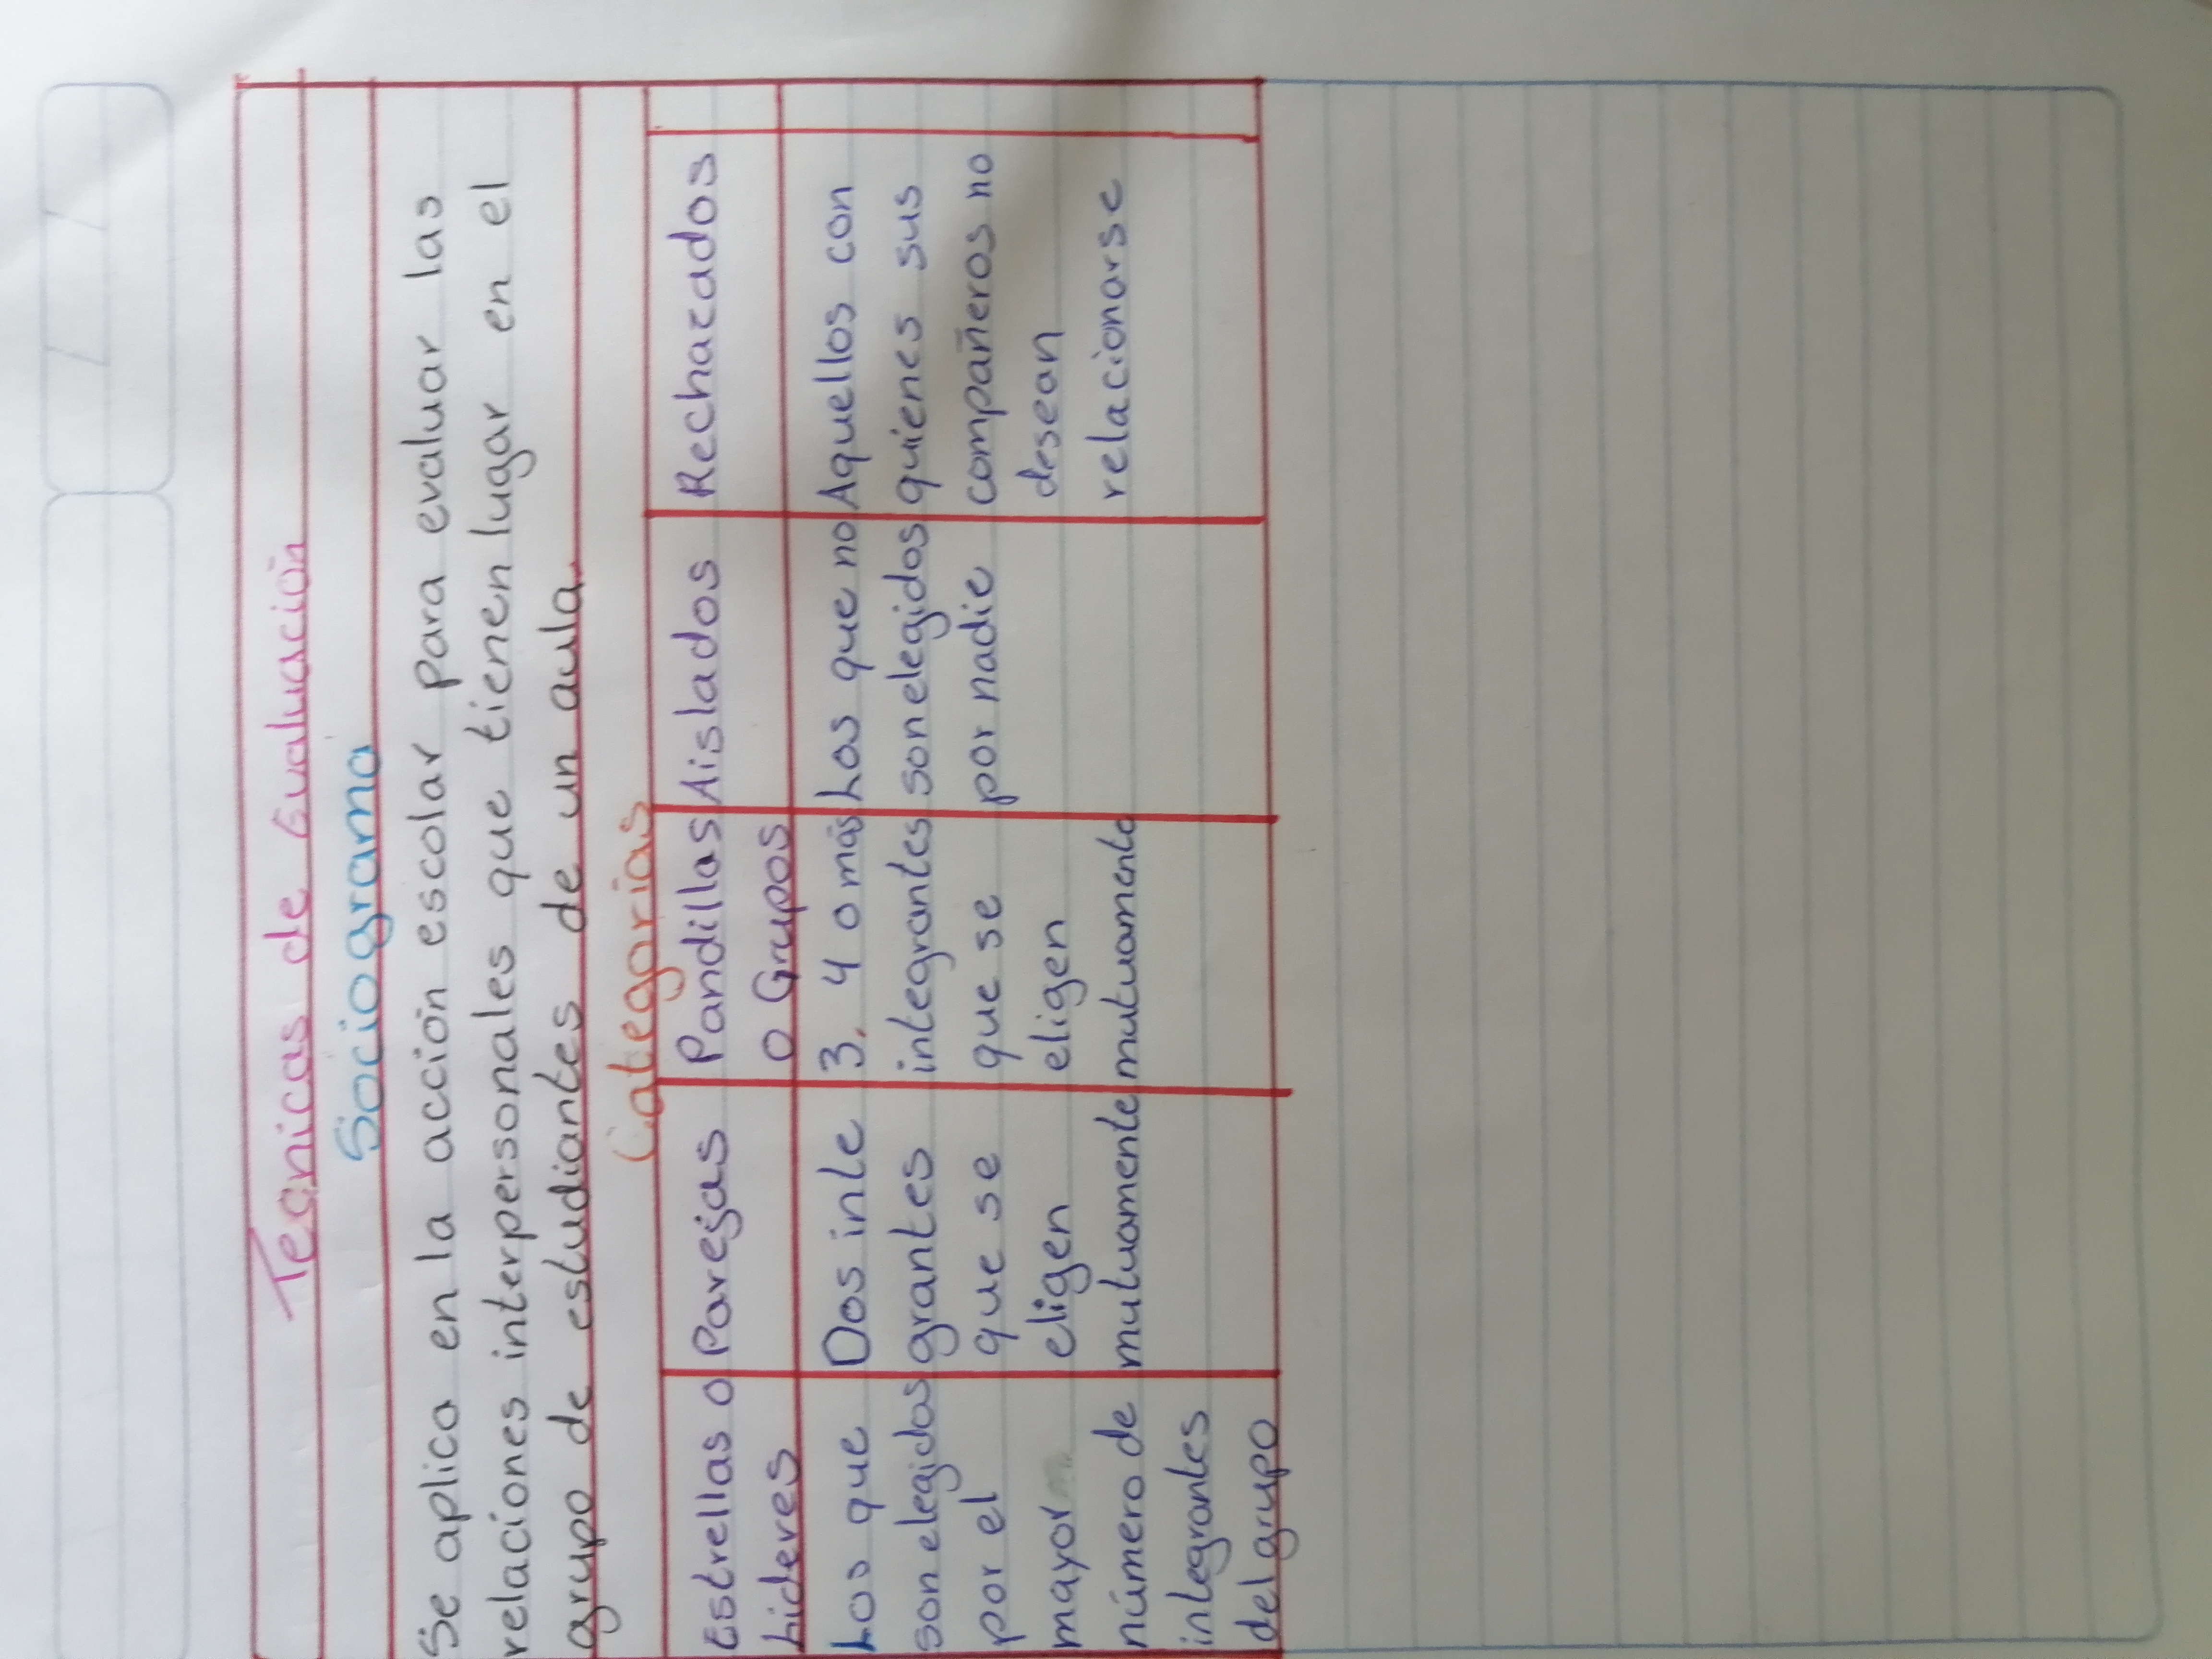 Tecnicas de Evaluación
Sociograma
Se aplica en la acción escolar para evaluar las
relaciones interpersonales que tienen lugar en el
grupo de estudiantes de un aula.
Categorias
Estrellas o
Lideres
Parejas
Pandillas
o Grupos
Aislados
Rechazados
Los que
son elegidos
por el
mayor
número de
integrantes
del grupo
Dos inte
grantes
que se
eligen
mutuamente
3, 4 o más
integrantes
que se
eligen
mutuamente
Los que no
son elegidos
por nadie
Aquellos con
quienes sus
compañeros no
desean
relacionarse